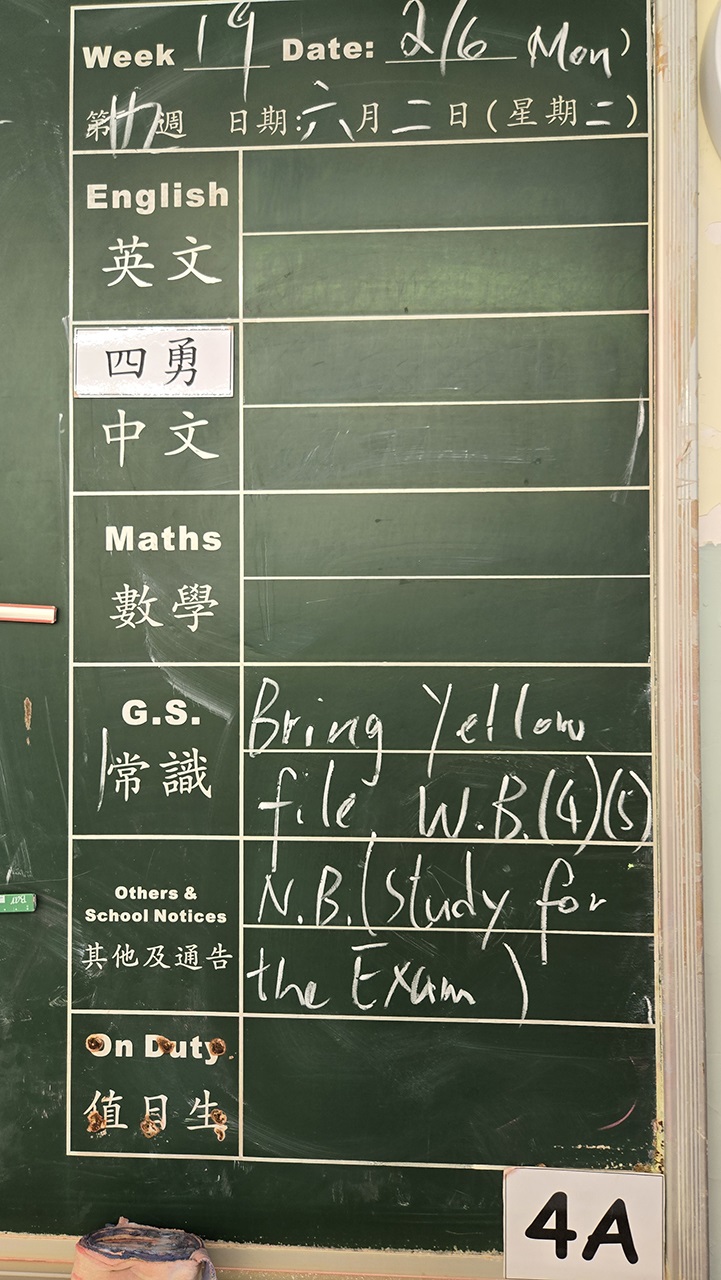 Week 19 Date: 2/6 (Mon)
第 週 日期:六月二日(星期二)
English
英文
四勇
中文
Maths
數學
G.S.
常識
Bring Yellow
file, W.B.(4)(5)
Others &
School Notices
其他及通告
N.B.(Study for
the Exam)
On Duty
值日生
4A